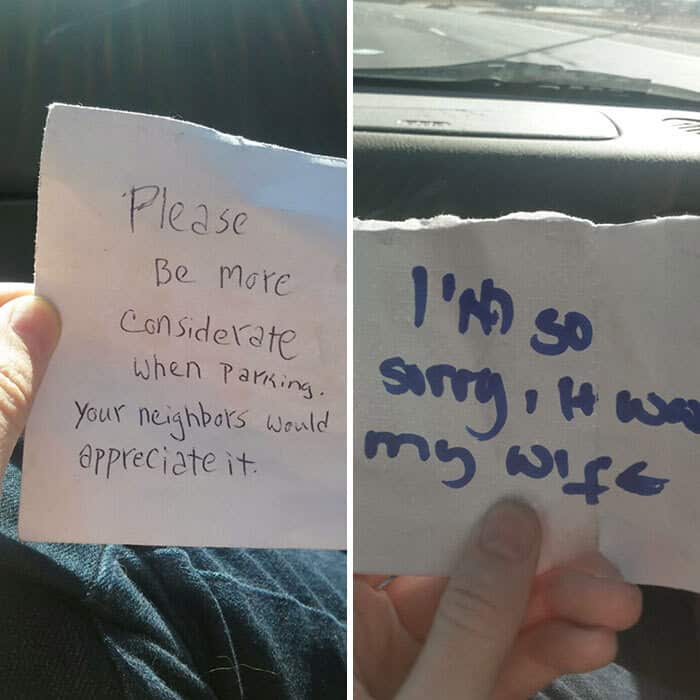 Please
Be more
Considerate
when Parking.
your neighbors would
appreciate it.
I'm so
sorry, it was
my wife